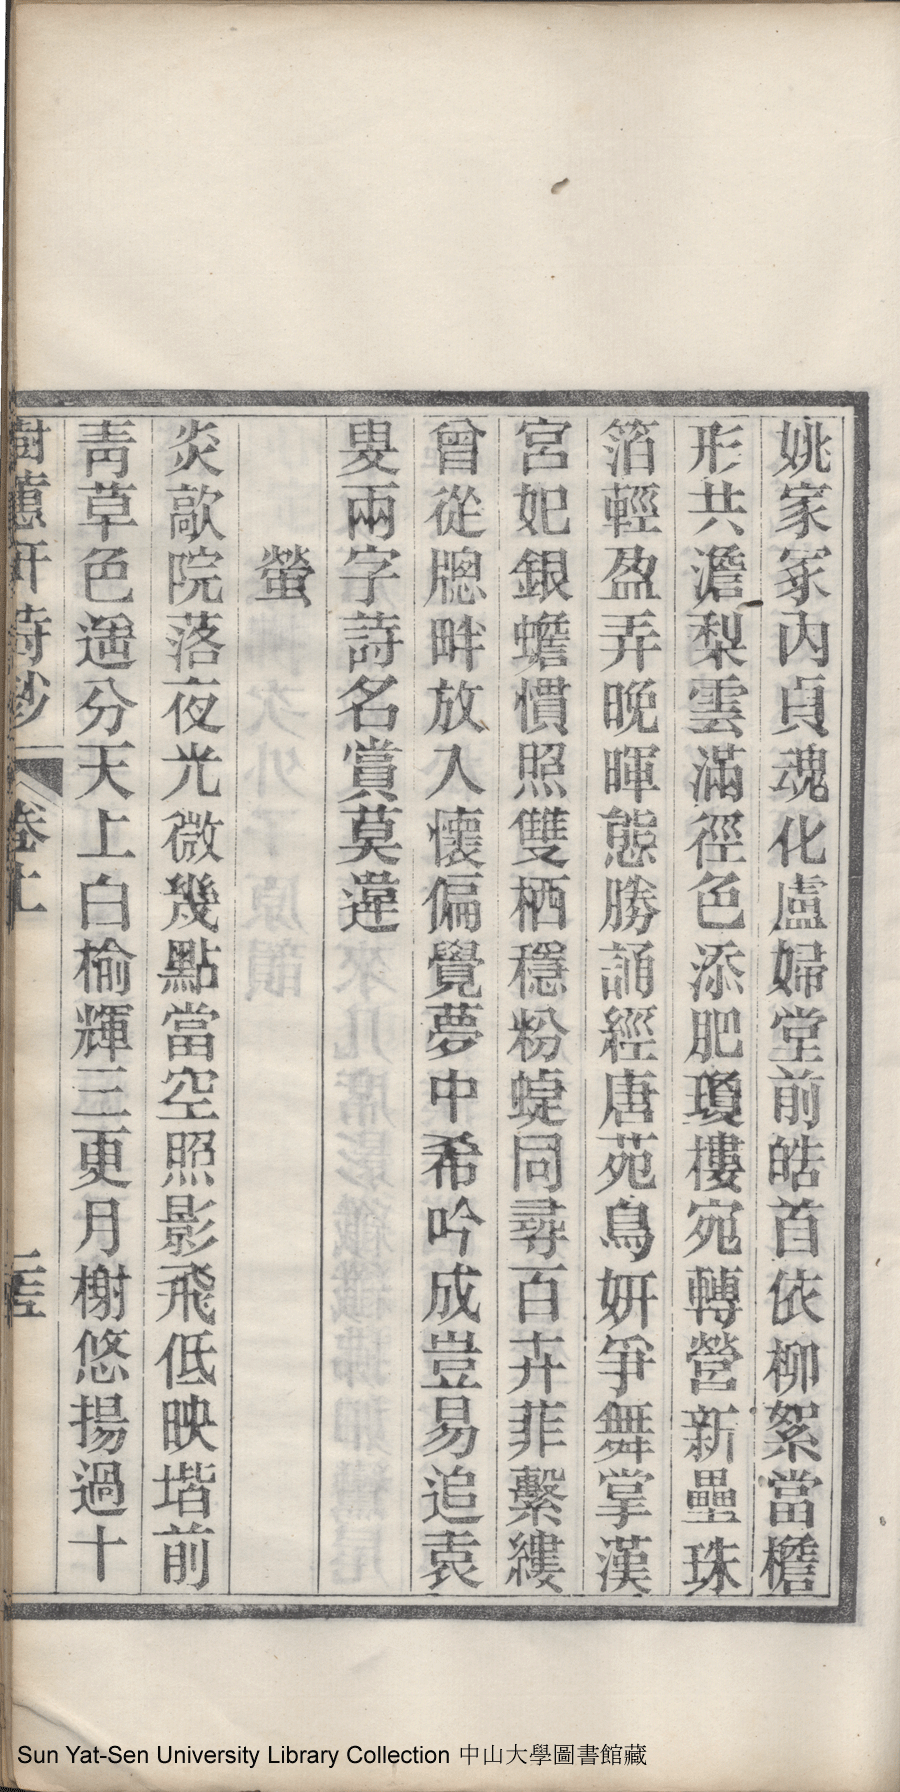 姚家冢內貞魂化盧婦堂前皓首依柳絮當檐
形共澹梨雲滿徑色添肥瓊樓宛轉營新壘珠
箔輕盈弄晚暉態勝誦經唐苑鳥妍爭舞掌漢
宮妃銀蟾慣照雙栖穩粉蜨同尋百卉菲繫縷
曾從牕畔放入懷偏覺夢中希吟成豈易追袁
叟兩字詩名賞莫違
螢
炎歊院落夜光微幾點當空照影飛低映堦前
靑草色遥分天上白榆輝三更月榭悠揚過十
樹蕙軒詩鈔 卷上
Sun Yat-Sen University Library Collection 中山大學圖書館藏